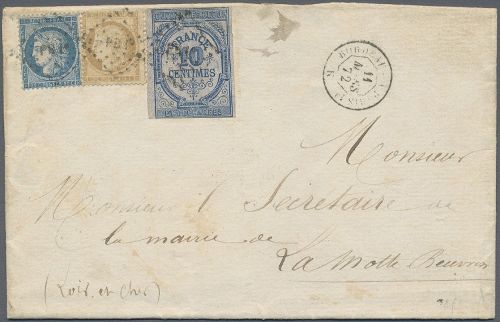 FRANCE
10
CENTIMES
BORDEAUX
11
MARS
72
Monsieur
Monsieur l Secrétaire de
la mairie de
La Motte Beuvron
(Loir et Cher)